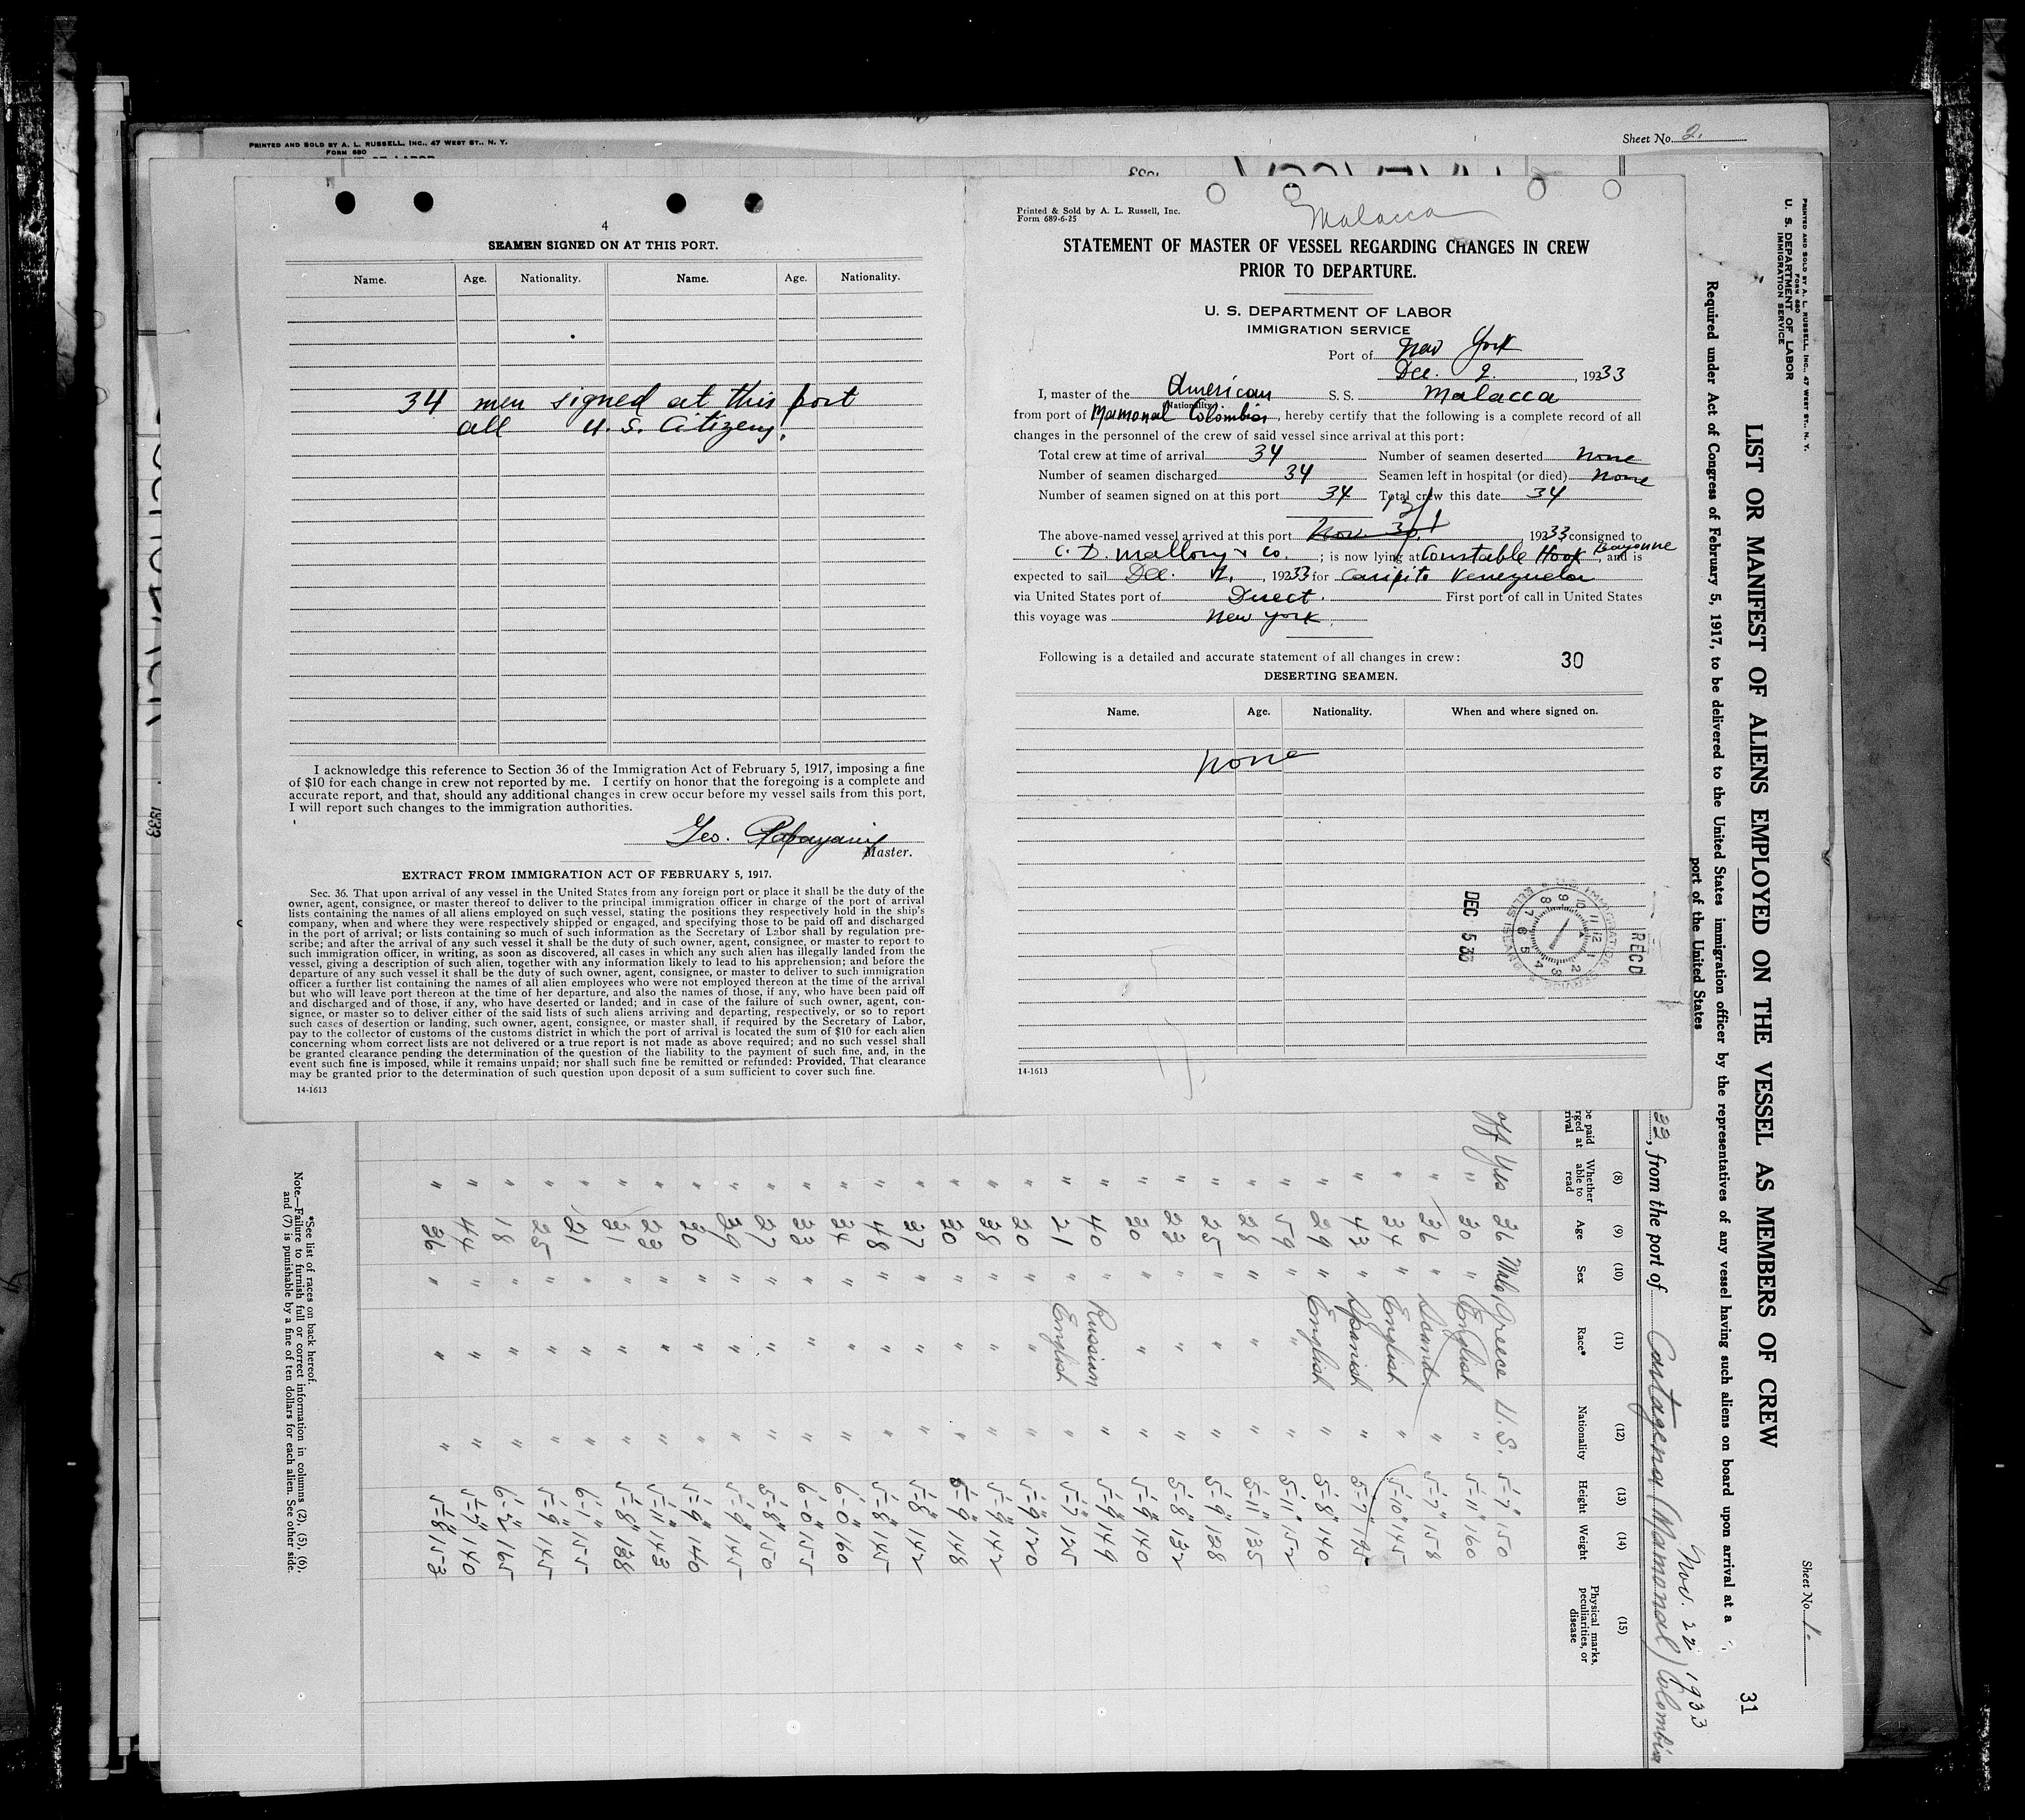 Sheet No. 2.
PRINTED AND SOLD BY A. L. RUSSELL, INC., 47 WEST ST., N. Y.
FORM 680
4
SEAMEN SIGNED ON AT THIS PORT.
Name. Age. Nationality. Name. Age. Nationality.
34 men signed at this port
all U. S. Citizens.
I acknowledge this reference to Section 36 of the Immigration Act of February 5, 1917, imposing a fine
of $10 for each change in crew not reported by me. I certify on honor that the foregoing is a complete and
accurate report, and that, should any additional changes in crew occur before my vessel sails from this port,
I will report such changes to the immigration authorities.
Geo.
Master.
EXTRACT FROM IMMIGRATION ACT OF FEBRUARY 5, 1917.
Sec. 36. That upon arrival of any vessel in the United States from any foreign port or place it shall be the duty of the
owner, agent, consignee, or master thereof to deliver to the principal immigration officer in charge of the port of arrival
lists containing the names of all aliens employed on such vessel, stating the positions they respectively hold in the ship's
company, when and where they were respectively shipped or engaged, and specifying those to be paid off and discharged
in the port of arrival; or lists containing so much of such information as the Secretary of Labor shall by regulation pre-
scribe; and after the arrival of any such vessel it shall be the duty of such owner, agent, consignee, or master to report to
such immigration officer, in writing, as soon as discovered, all cases in which any such alien has illegally landed from the
vessel, giving a description of such alien, together with any information likely to lead to his apprehension; and before the
departure of any such vessel it shall be the duty of such owner, agent, consignee, or master to deliver to such immigration
officer a further list containing the names of all alien employees who were not employed thereon at the time of the arrival
but who will leave port thereon at the time of her departure, and also the names of those, if any, who have been paid off
and discharged and of those, if any, who have deserted or landed; and in case of the failure of such owner, agent, con-
signee, or master so to deliver either of the said lists of such aliens arriving and departing, respectively, or so to report
such cases of desertion or landing, such owner, agent, consignee, or master shall, if required by the Secretary of Labor,
pay to the collector of customs of the customs district in which the port of arrival is located the sum of $10 for each alien
concerning whom correct lists are not delivered or a true report is not made as above required; and no such vessel shall
be granted clearance pending the determination of the question of the liability to the payment of such fine, and, in the
event such fine is imposed, while it remains unpaid; nor shall such fine be remitted or refunded: Provided, That clearance
may be granted prior to the determination of such question upon deposit of a sum sufficient to cover such fine.
14-1613
Printed & Sold by A. L. Russell, Inc.
Form 689-6-25
Malacca
STATEMENT OF MASTER OF VESSEL REGARDING CHANGES IN CREW
PRIOR TO DEPARTURE.
U. S. DEPARTMENT OF LABOR
IMMIGRATION SERVICE
Port of New York
Dec. 2. , 19233
I, master of the American S. S. Malacca
Nationality
from port of Mamonal Colombia, hereby certify that the following is a complete record of all
changes in the personnel of the crew of said vessel since arrival at this port:
Total crew at time of arrival 34 Number of seamen deserted none
Number of seamen discharged 34 Seamen left in hospital (or died) none
Number of seamen signed on at this port 34 Total crew this date 34
The above-named vessel arrived at this port Nov. 30, 19233 consigned to
C. D. Mallory & Co. ; is now lying at Constable Hook Bayonne, and is
expected to sail Dec. 2, , 19233 for Caripito Venezuela
via United States port of Direct. First port of call in United States
this voyage was New York.
Following is a detailed and accurate statement of all changes in crew: 30
DESERTING SEAMEN.
Name. Age. Nationality. When and where signed on.
none
DEC 5 33
U.S. IMMIGRATION SERVICE ELLIS ISLAND
RECD
14-1613
PRINTED AND SOLD BY A. L. RUSSELL, INC., 47 WEST ST., N. Y.
FORM 680
U. S. DEPARTMENT OF LABOR
IMMIGRATION SERVICE
Sheet No. 1.
31
LIST OR MANIFEST OF ALIENS EMPLOYED ON THE VESSEL AS MEMBERS OF CREW
Required under Act of Congress of February 5, 1917, to be delivered to the United States immigration officer by the representatives of any vessel having such aliens on board upon arrival at a
port of the United States
Nov. 22 1933
33, from the port of Cartagena (Mamonal) Colombia
(8) (9) (10) (11) (12) (13) (14) (15)
Whether able to read Age Sex Race* Nationality Height Weight Physical marks, peculiarities, or disease
off Yes 26 Male Greece U. S. 5-7" 150
" 30 " English " 5-11" 160
" 26 " Scand. " 5-7" 158
" 34 " English " 5-10" 145
" 43 " Spanish " 5-7" 195
" 29 " English " 5-8" 140
" 59 " " " 5-11" 152
" 28 " " " 5-11" 135
" 25 " " " 5-9" 128
" 23 " " " 5-8" 132
" 20 " " " 5-9" 140
" 40 " Russian " 5-9" 149
" 21 " English " 5-7" 125
" 20 " " " 5-9" 120
" 38 " " " 5-9" 142
" 20 " " " 5-9" 148
" 37 " " " 5-8" 142
" 48 " " " 5-8" 145
" 34 " " " 6-0" 160
" 33 " " " 6-0" 155
" 27 " " " 5-8" 150
" 39 " " " 5-9" 145
" 20 " " " 5-9" 140
" 23 " " " 5-11" 143
" 21 " " " 5-8" 138
" 21 " " " 6-1" 155
" 25 " " " 5-9" 145
" 18 " " " 6-2" 165
" 44 " " " 5-7" 140
" 36 " " " 5-8" 153
*See list of races on back hereof.
Note.—Failure to furnish full or correct information in columns (2), (5), (6),
and (7) is punishable by a fine of ten dollars for each alien. See other side.